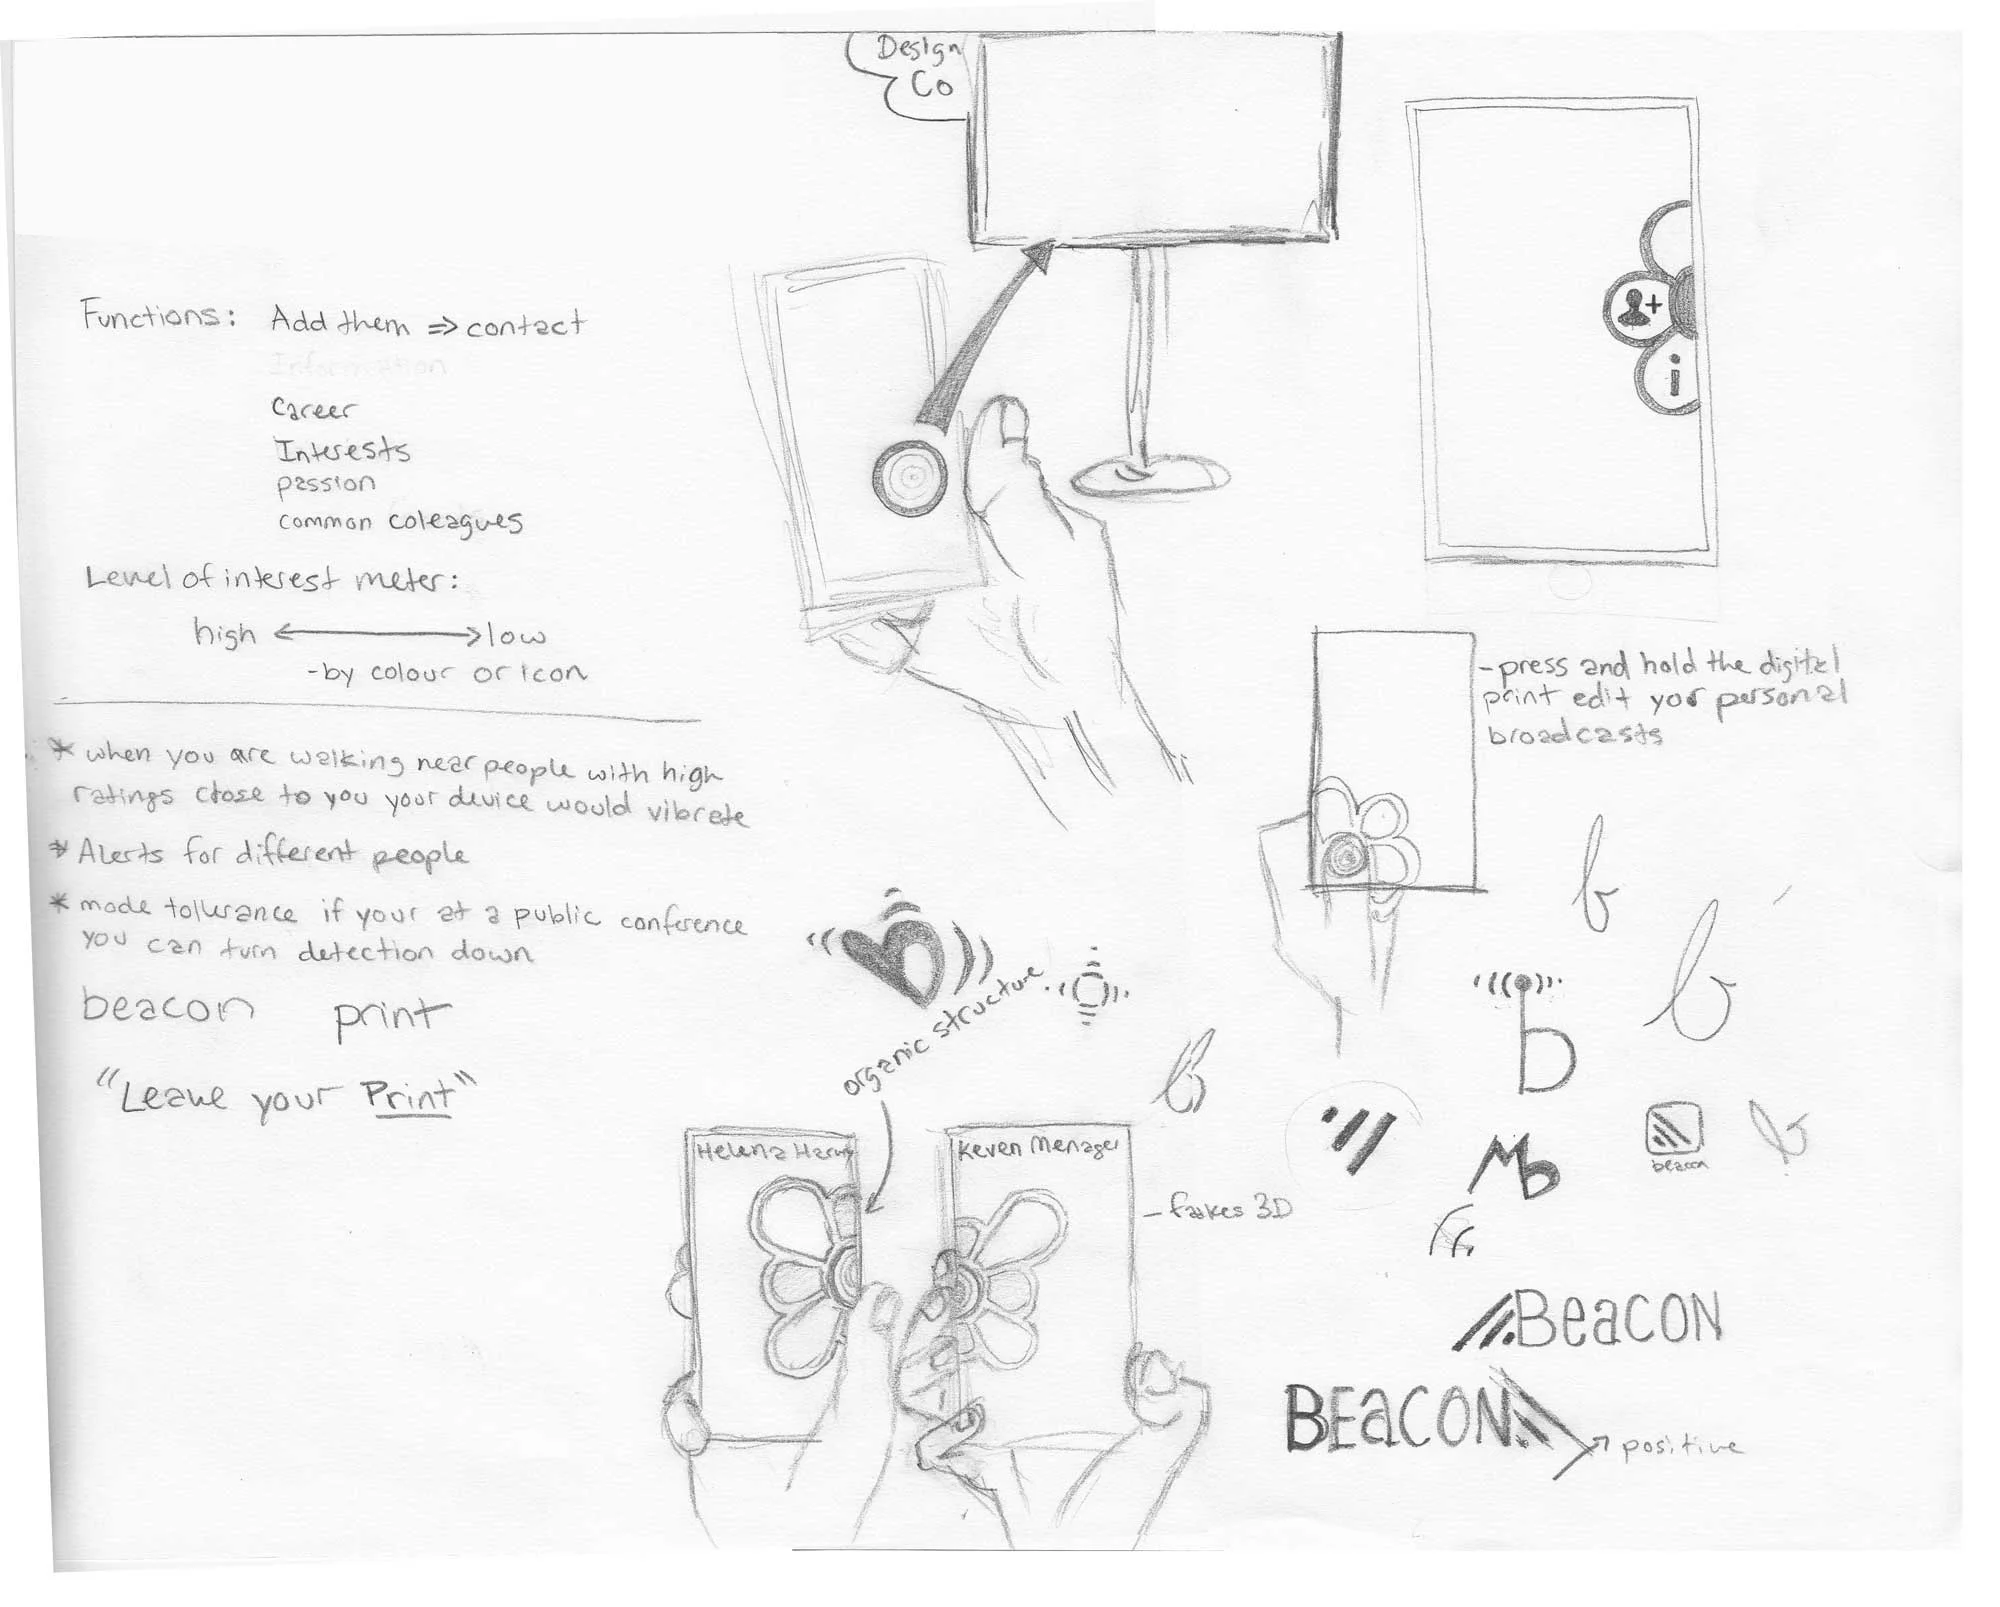 Design
Co
Functions: Add them ⇒ contact
Information
Career
Interests
passion
common coleagues
Level of interest meter:
high ⟷ low
-by colour or icon
* when you are walking near people with high
ratings close to you your device would vibrate
* Alerts for different people
* mode tollerance if your at a public conference
you can turn detection down
beacon print
"Leave your Print"
i
-press and hold the digital
print edit your personal
broadcasts
organic structure
Helena
Keven Menager
- fakes 3D
b
b
b
b
b
beacon
Beacon
BEaCON
positive